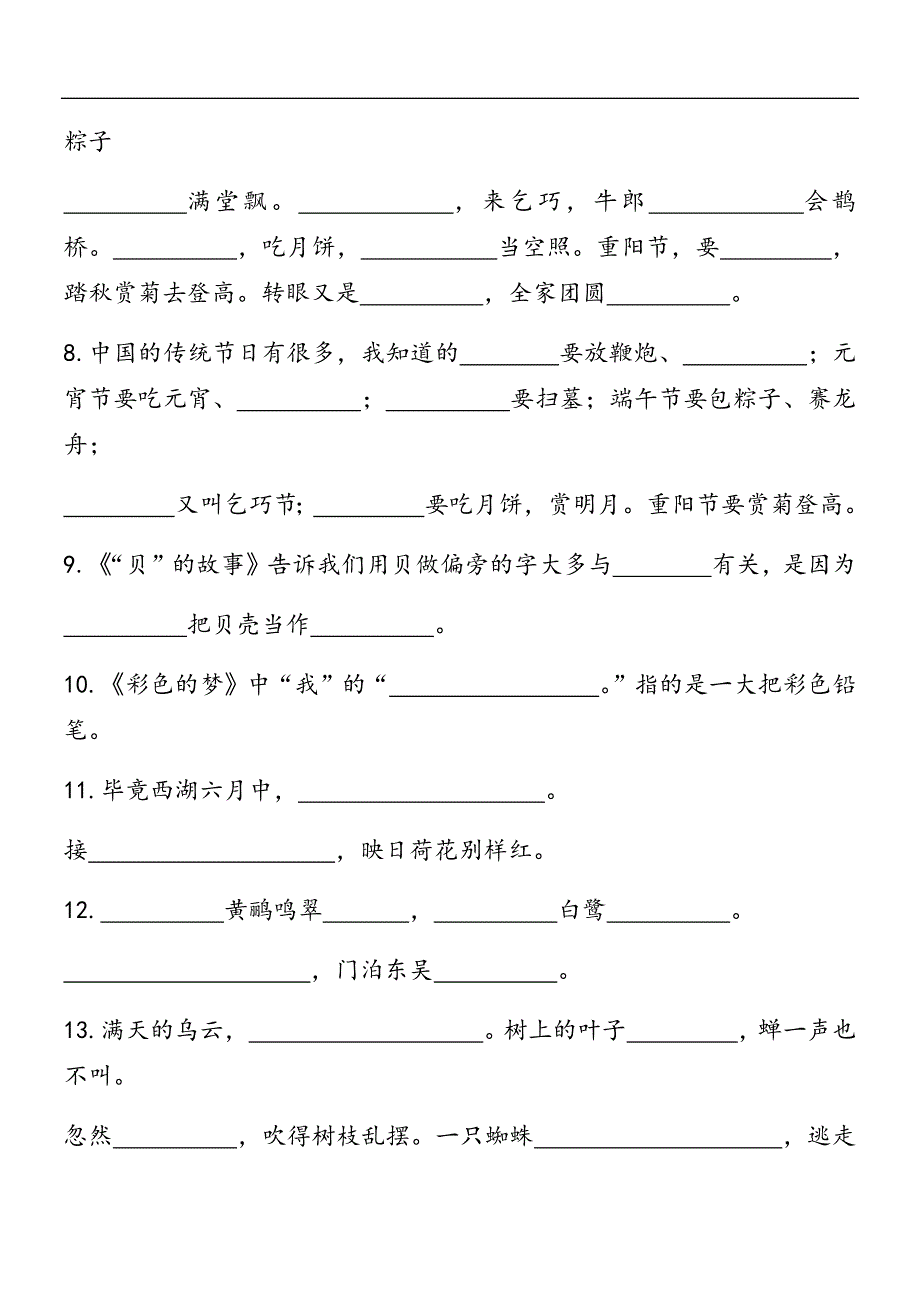 粽子
__________满堂飘。____________，来乞巧，牛郎____________会鹊
桥。__________，吃月饼，___________当空照。重阳节，要_________，
踏秋赏菊去登高。转眼又是__________，全家团圆__________。
8.中国的传统节日有很多，我知道的________要放鞭炮、__________；元
宵节要吃元宵、__________；__________要扫墓；端午节要包粽子、赛龙
舟；
_________又叫乞巧节；_________要吃月饼，赏明月。重阳节要赏菊登高。
9.《“贝”的故事》告诉我们用贝做偏旁的字大多与________有关，是因为
__________把贝壳当作__________。
10.《彩色的梦》中“我”的“_________________。”指的是一大把彩色铅
笔。
11.毕竟西湖六月中，____________________。
接____________________，映日荷花别样红。
12.__________黄鹂鸣翠_______，__________白鹭__________。
____________________，门泊东吴__________。
13.满天的乌云，___________________。树上的叶子_________，蝉一声也
不叫。
忽然__________，吹得树枝乱摆。一只蜘蛛____________________，逃走